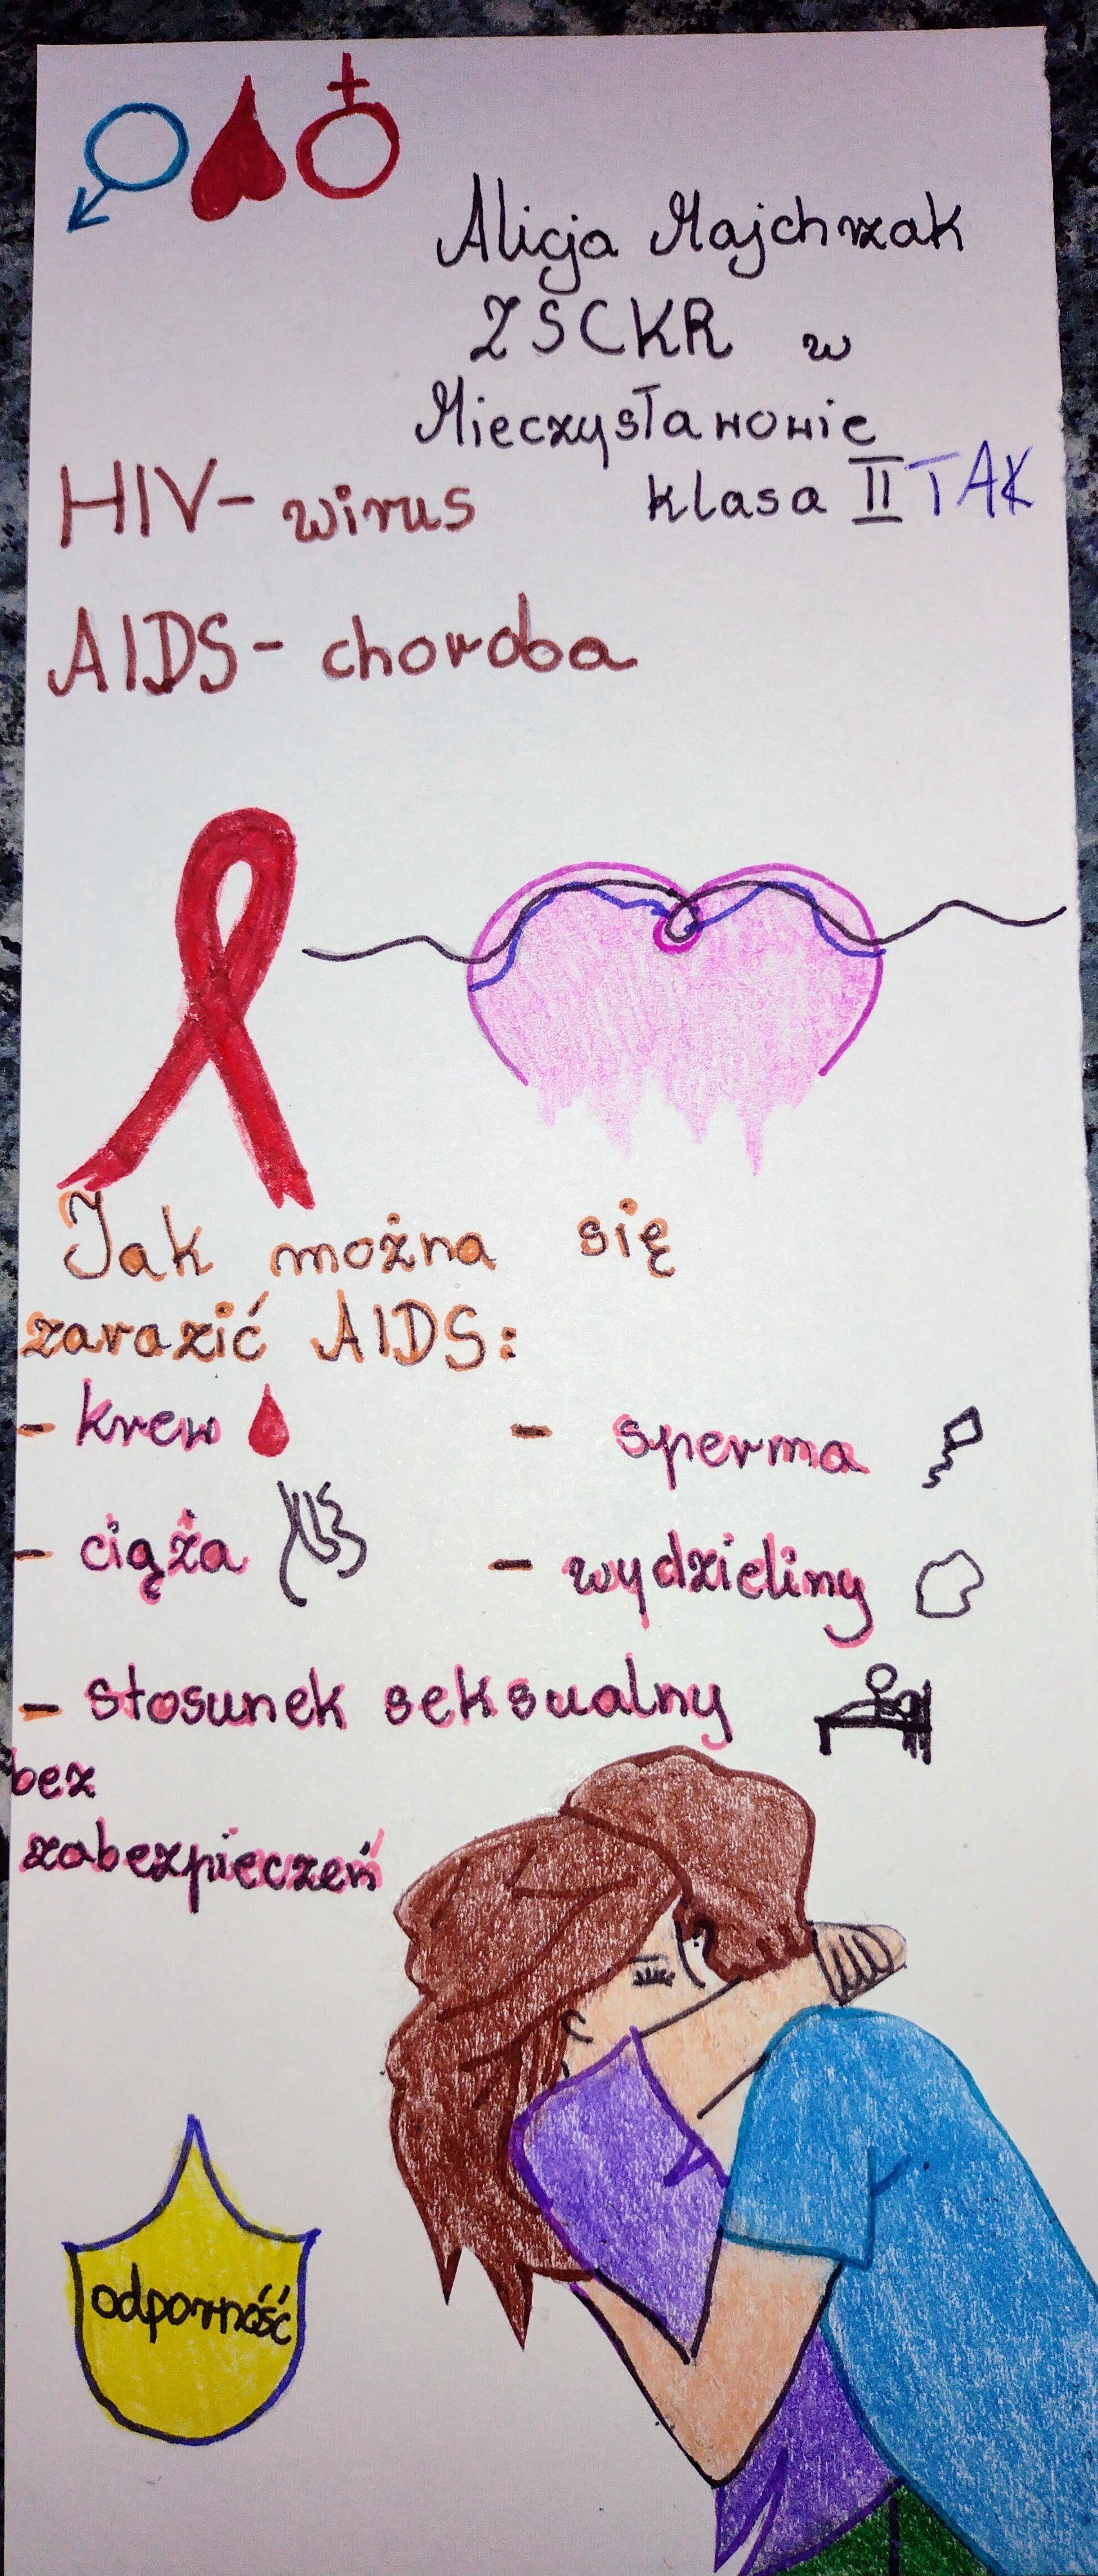 Alicja Majchrzak
ZSCKR w
Mieczysławowie
klasa II TAK
HIV- wirus
AIDS- choroba
Jak można się
zarazić AIDS:
- krew
- sperma
- ciąża
- wydzieliny
- stosunek seksualny
bez
zabezpieczeń
odporność